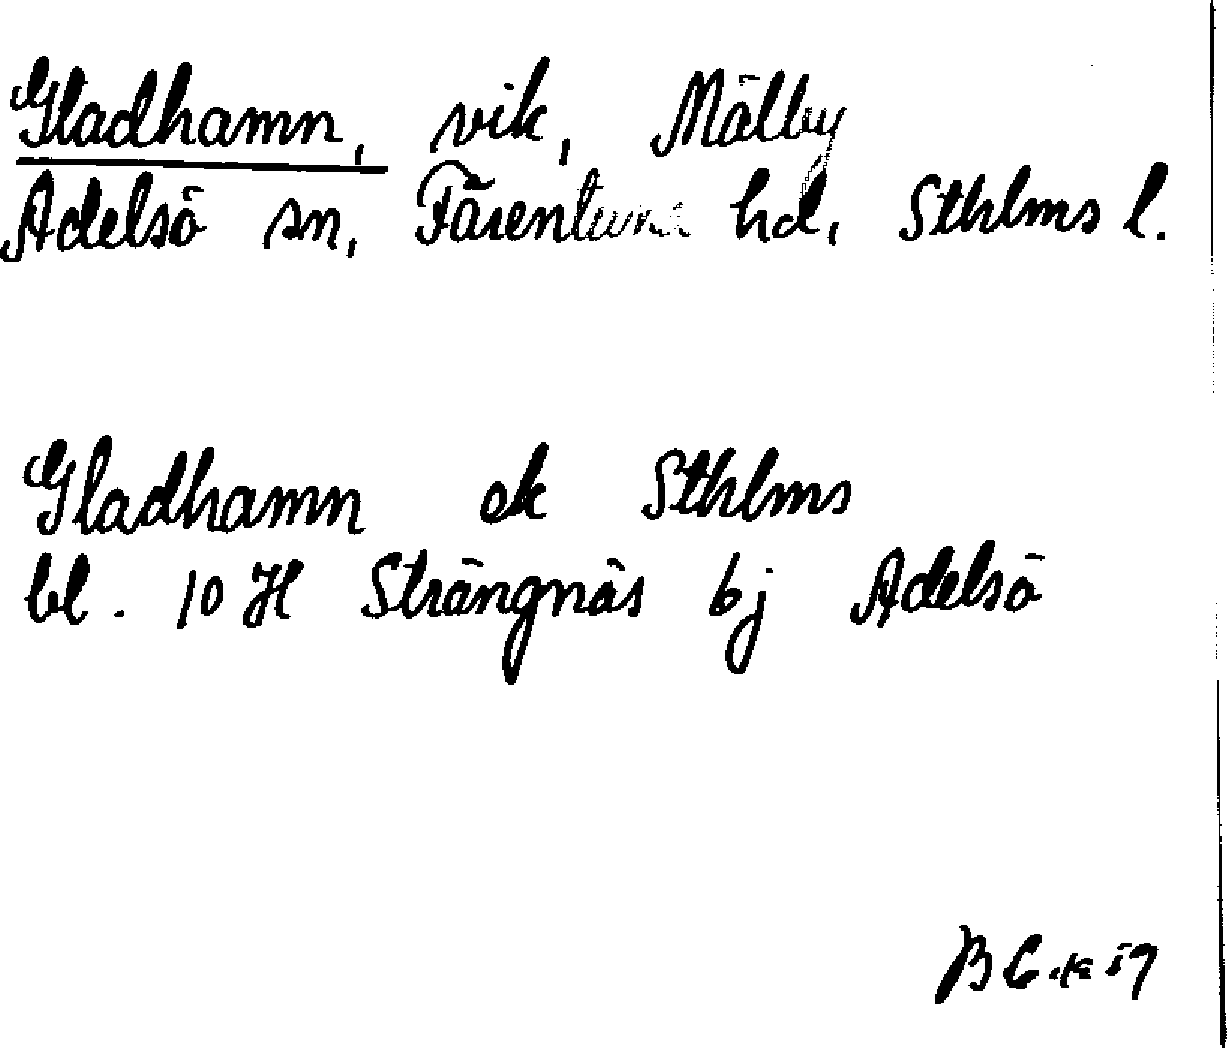 Gladhamn, vik, Mälby
Adelsö sn, Färentuna hd, Sthlms l.
Gladhamn ek Sthlms
bl. 10 H Strängnäs 6j Adelsö